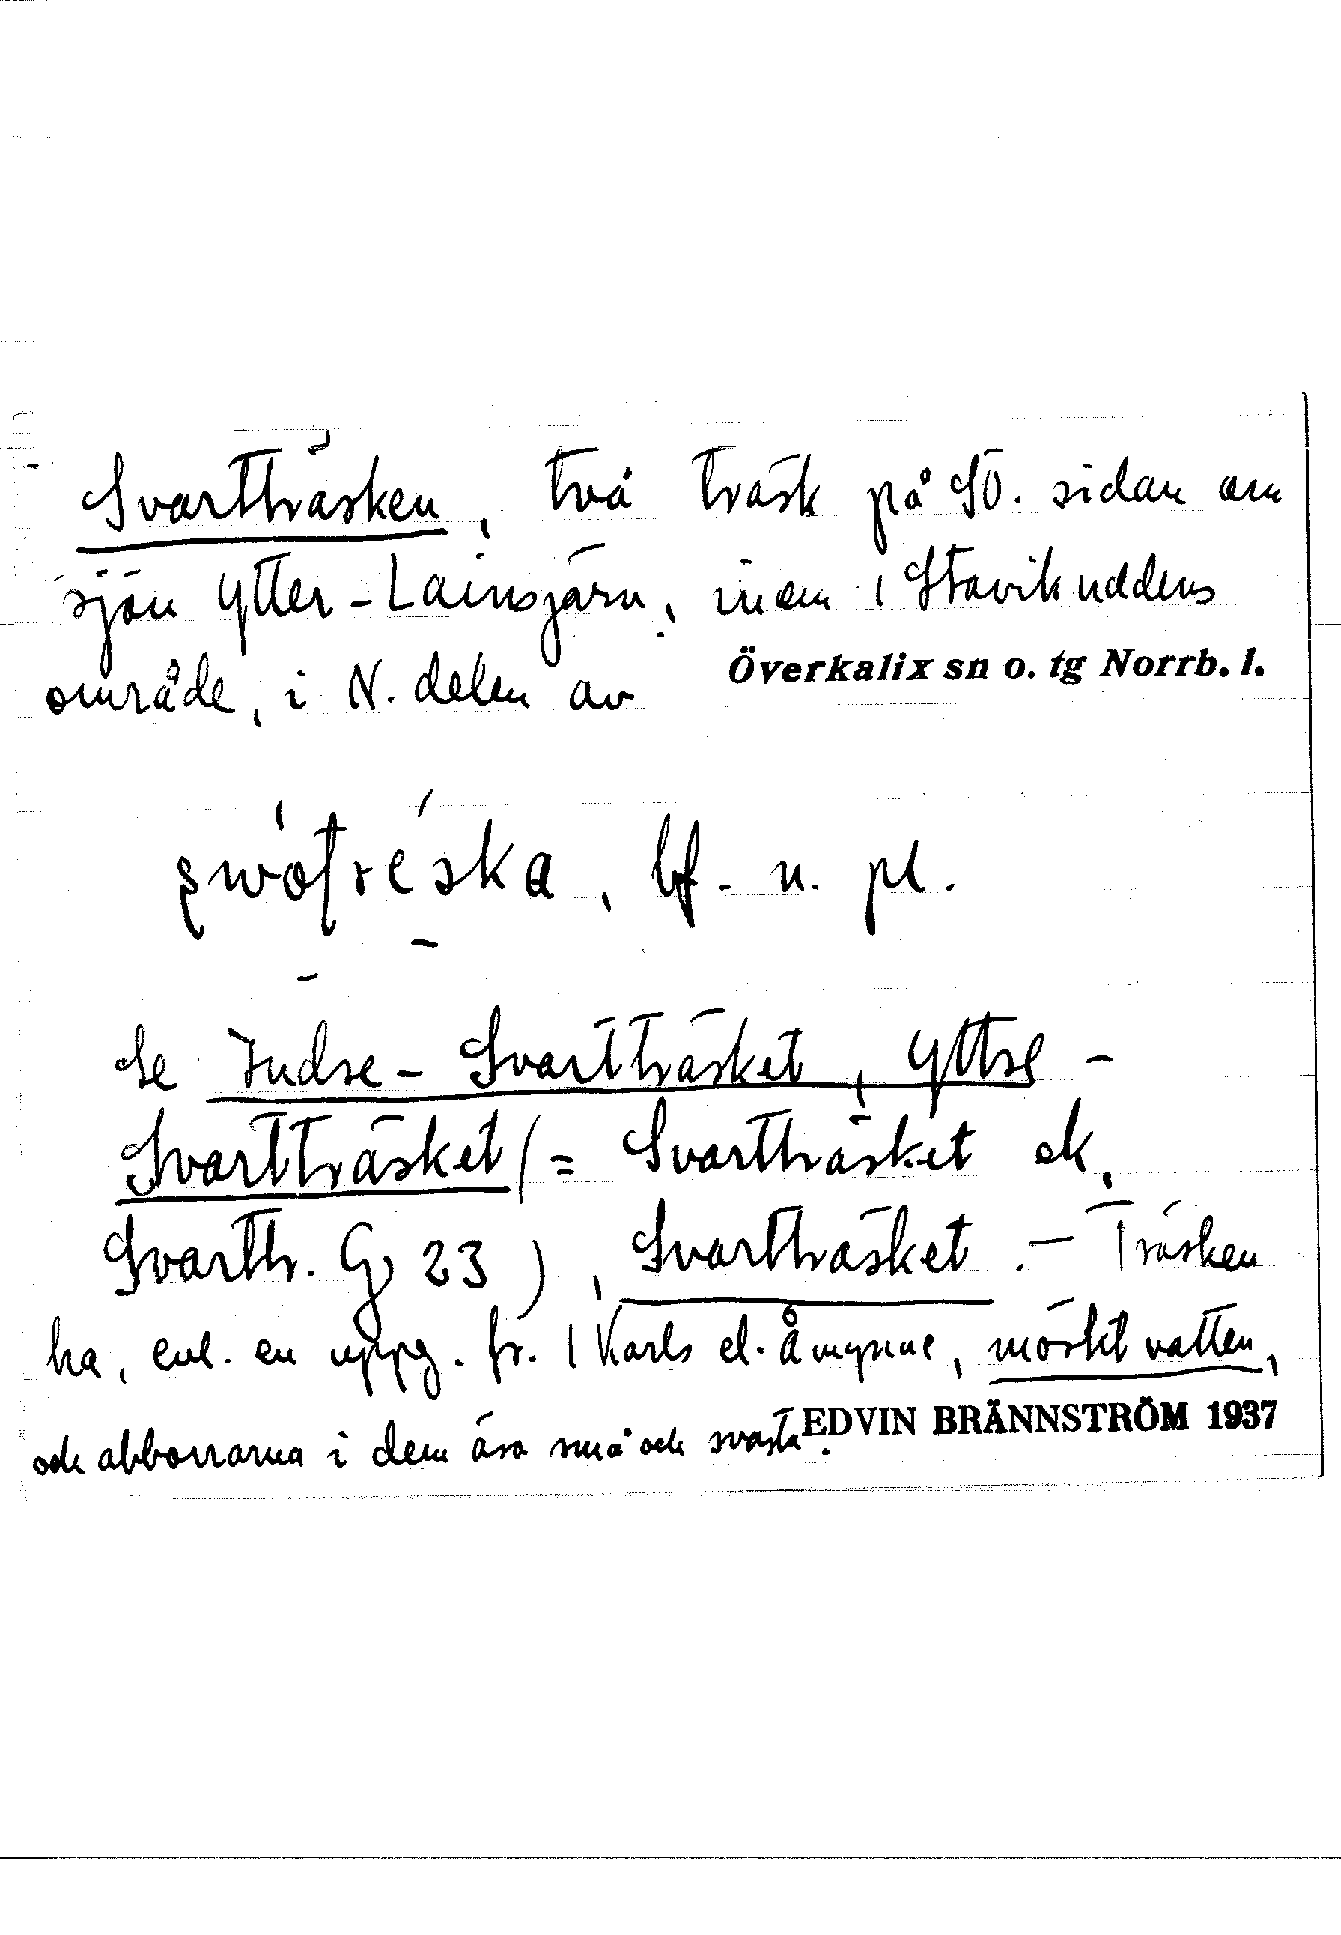 Svartträsken, två träsk på SO. sidan om
sjön Ytter-Lainsjärv, inom Stavikuddens
område, i N. delen av Överkalix sn o. tg Norrb. l.
bf. n. pl.
Se Indre-Svartträsket, Yttre-
Svartträsket (= Svartträsket ek,
Svarttr. G 23), Svartträsket. – Träsken
ha, enl. en uppg. fr. el. mörkt vatten,
och abborrarna i dem äro små och svarta.
EDVIN BRÄNNSTRÖM 1937